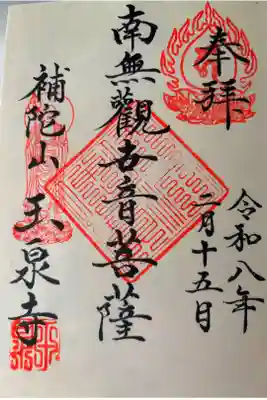 奉拝
令和八年
二月十五日
南無觀世音菩薩
補陀山 玉泉寺